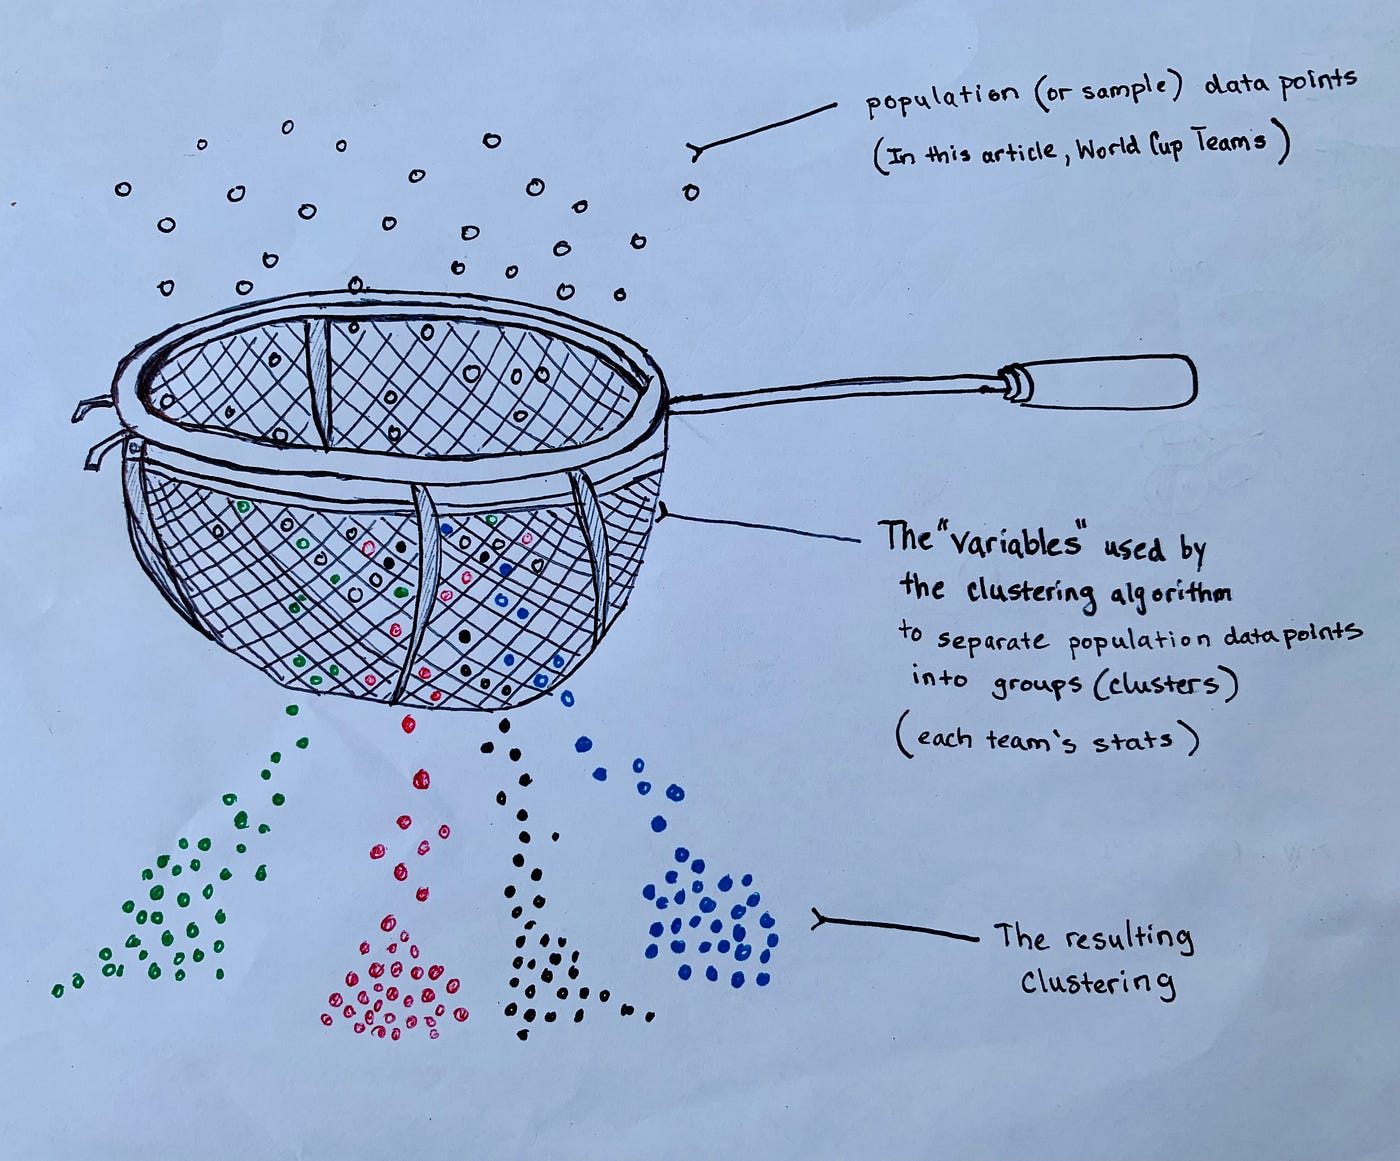 population (or sample) data points
(In this article, World Cup Teams)
The "variables" used by
the clustering algorithm
to separate population data points
into groups (clusters)
(each team's stats)
The resulting
Clustering